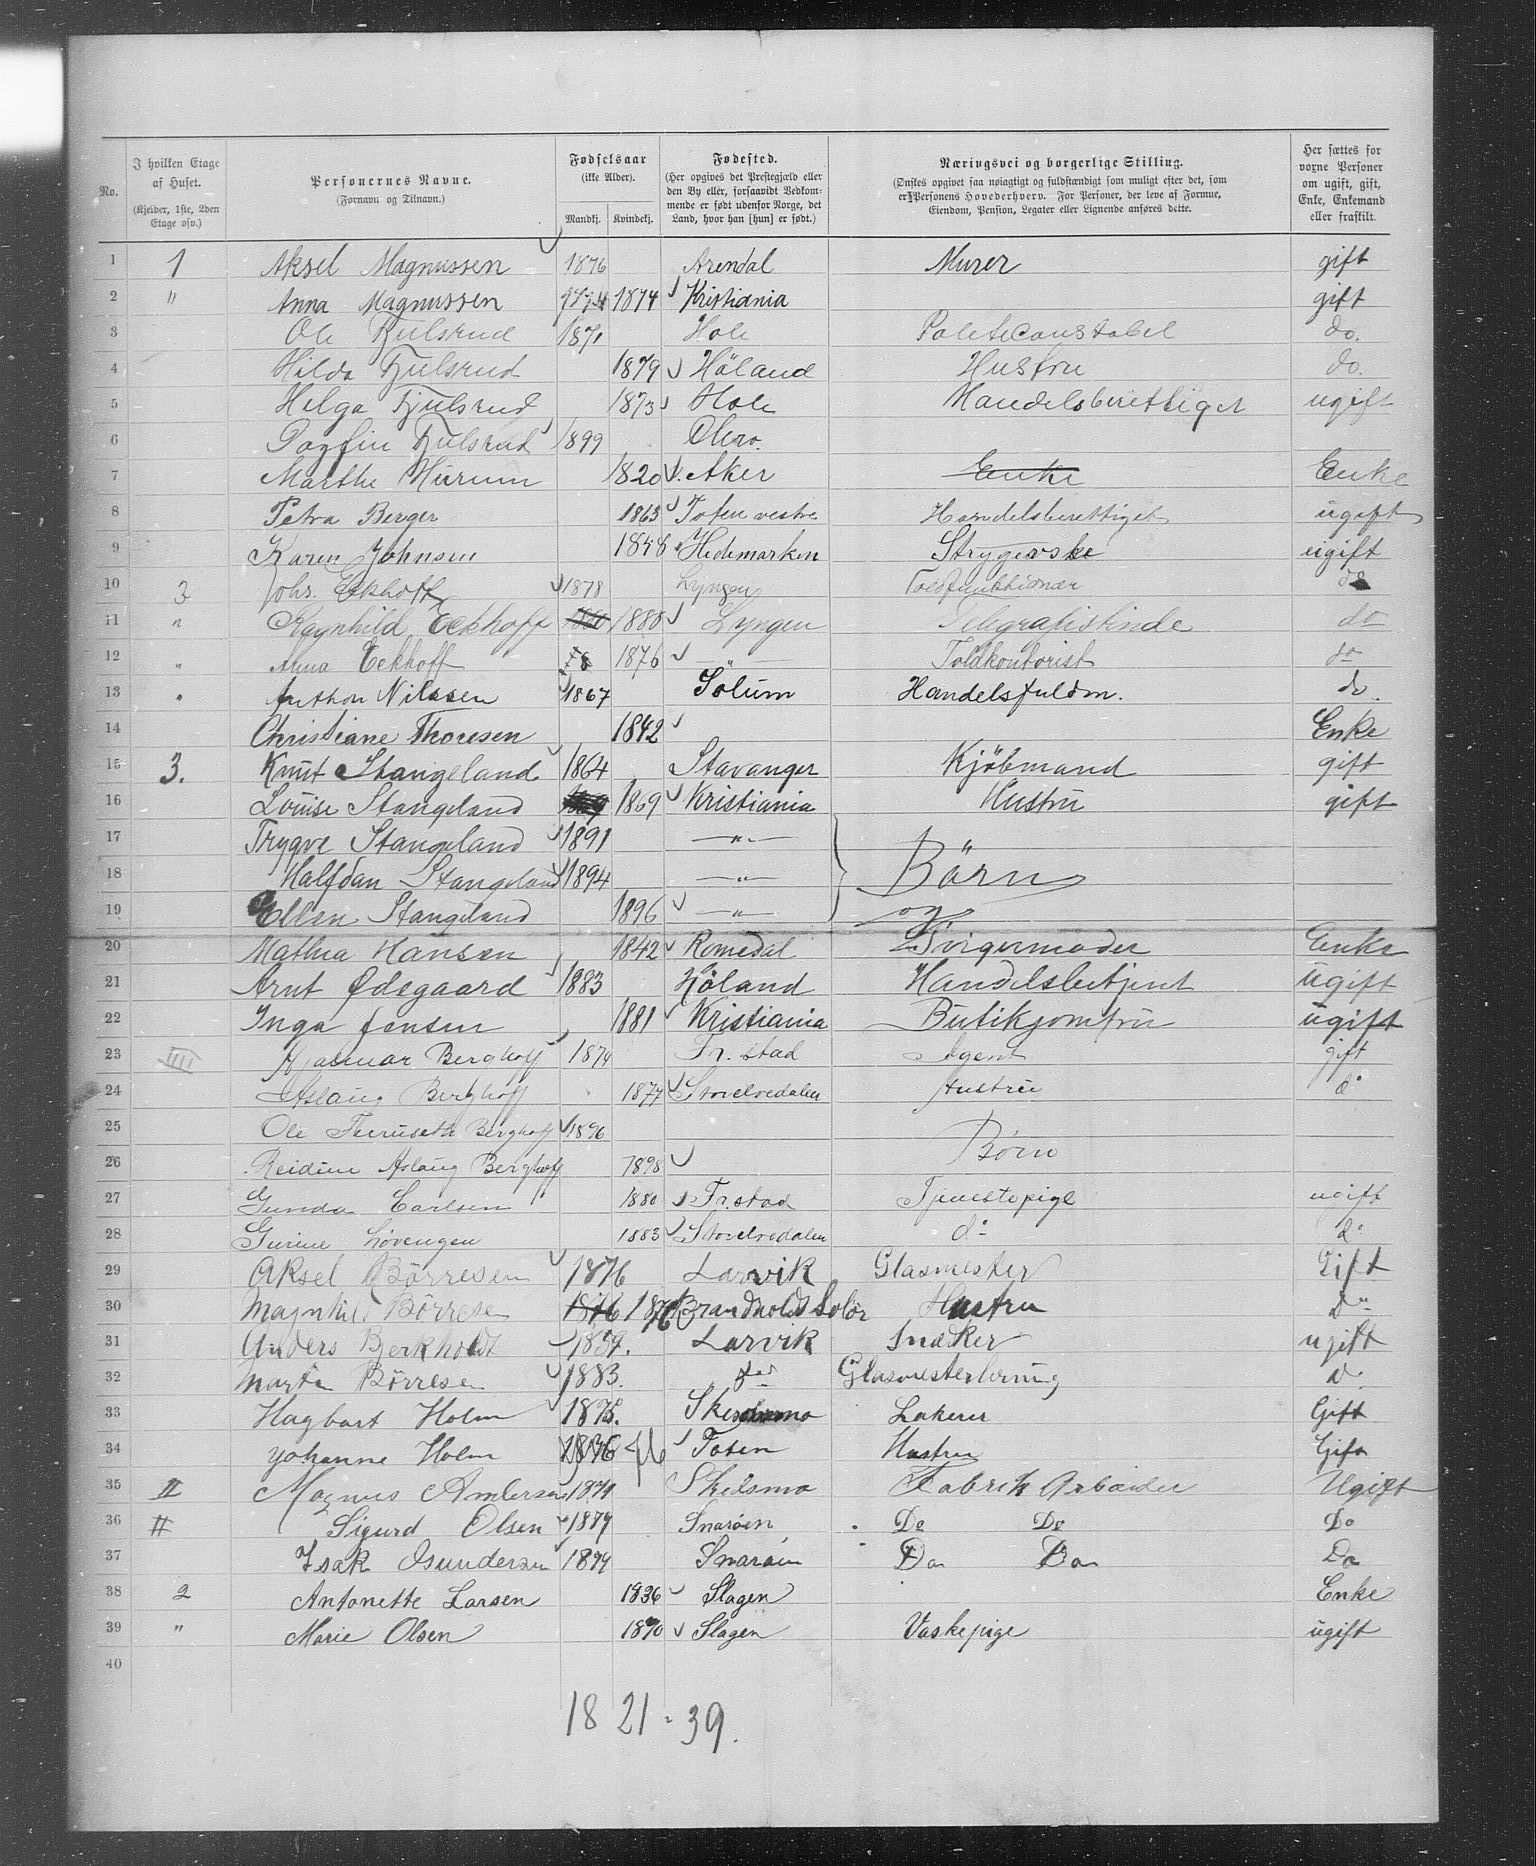 No. | I hvilken Etage af Huset. (Kjelder, 1ste, 2den Etage osv.) | Personernes Navne. (Fornavn og Tilnavn.) | Fødselsaar (ikke Alder). Mandkj. Kvindekj. | Fødested. (Her opgives det Prestegjæld eller den By eller, forsaavidt Vedkommende er født udenfor Norge, det Land, hvor han [hun] er født.) | Næringsvei og borgerlige Stilling. (Ønskes opgivet saa nøiagtigt og fuldstændigt som muligt efter det, som er Personens Hovederhverv. For Personer, der leve af Formue, Eiendom, Pension, Legater eller Lignende anføres dette. | Her sættes for voxne Personer om ugift, gift, Enke, Enkemand eller fraskilt.
1 1 Aksel Magnussen 1876 Arendal Murer gift
2 " Anna Magnussen 1874 1874 Kristiania gift
3 Ole Fjulsrud 1871 Hole Politiconstabel do.
4 Hilda Fjulsrud 1879 Høland Hustru do.
5 Helga Fjulsrud 1873 Hole Handelsberettiget ugift
6 Dagfin Fjulsrud 1899
7 Marthe Hurum 1820 Aker Enke Enke
8 Petra Berger 1863 Toten vestre Handelsberettiget ugift
9 Karen Johnsen 1848 Hedemarken Strygerske ugift
10 3 Johs. Eckhoff 1878 Lyngen Toldfunktionær do
11 " Ragnhild Eckhoff 1880 1880 Lyngen Telegrafistinde do
12 " Anna Eckhoff 78 1876 — " — Toldkontorist do
13 " Anthon Nilssen 1867 Solum Handelsfuldm. do.
14 Christiane Thoresen 1842 Enke
15 3. Knut Stangeland 1864 Stavanger Kjøbmand gift
16 Louise Stangeland 1869 Kristiania Hustru gift
17 Trygve Stangeland 1891 — " —
18 Halfdan Stangeland 1894 — " — Börn
19 Ellen Stangeland 1896 — " — og
20 Mathea Hansen 1842 Romedal Svigermoder Enke
21 Arnt Ødegaard 1883 Høland Handelsbetjent ugift
22 Inga Jensen 1881 Kristiania Butikjomfru ugift
23 IIII Hjalmar Berghoff 1874 Fr. stad Agent gift
24 Aslaug Berghoff 1877 Storelvedalen Hustru do
25 Ole Berghoff 1896
26 Reidun Aslaug Berghoff 1898 Börn
27 Gunda Carlsen 1880 Fr. stad Tjenestepige ugift
28 Gurine Lövengen 1883 Storelvedalen do do
29 Aksel Börresen 1876 Larvik Glasmester Gift
30 Magnhild Börresen 1876 1876 Brandvold Solör Hustru Do
31 Anders Berkholdt 1859. Larvik Snedker ugift
32 Martin Börresen 1883. do Glasmesterlærling do
33 Hagbart Holm 1875. Skedsmo Lakerer Gift
34 Johanne Holm 1876 76 Toten Hustru Gift
35 II Magnus Andersen 1879 Skedsmo Fabrik Arbeider Ugift
36 II Sigurd Olsen 1879 Snarøen Do Do Do
37 Isak Osundersen 1879 Snarøen Do Do Do
38 2 Antonette Larsen 1836 Slagen Enke
39 " Marie Olsen 1870 Slagen Vaskepige ugift
40
18 21 = 39.